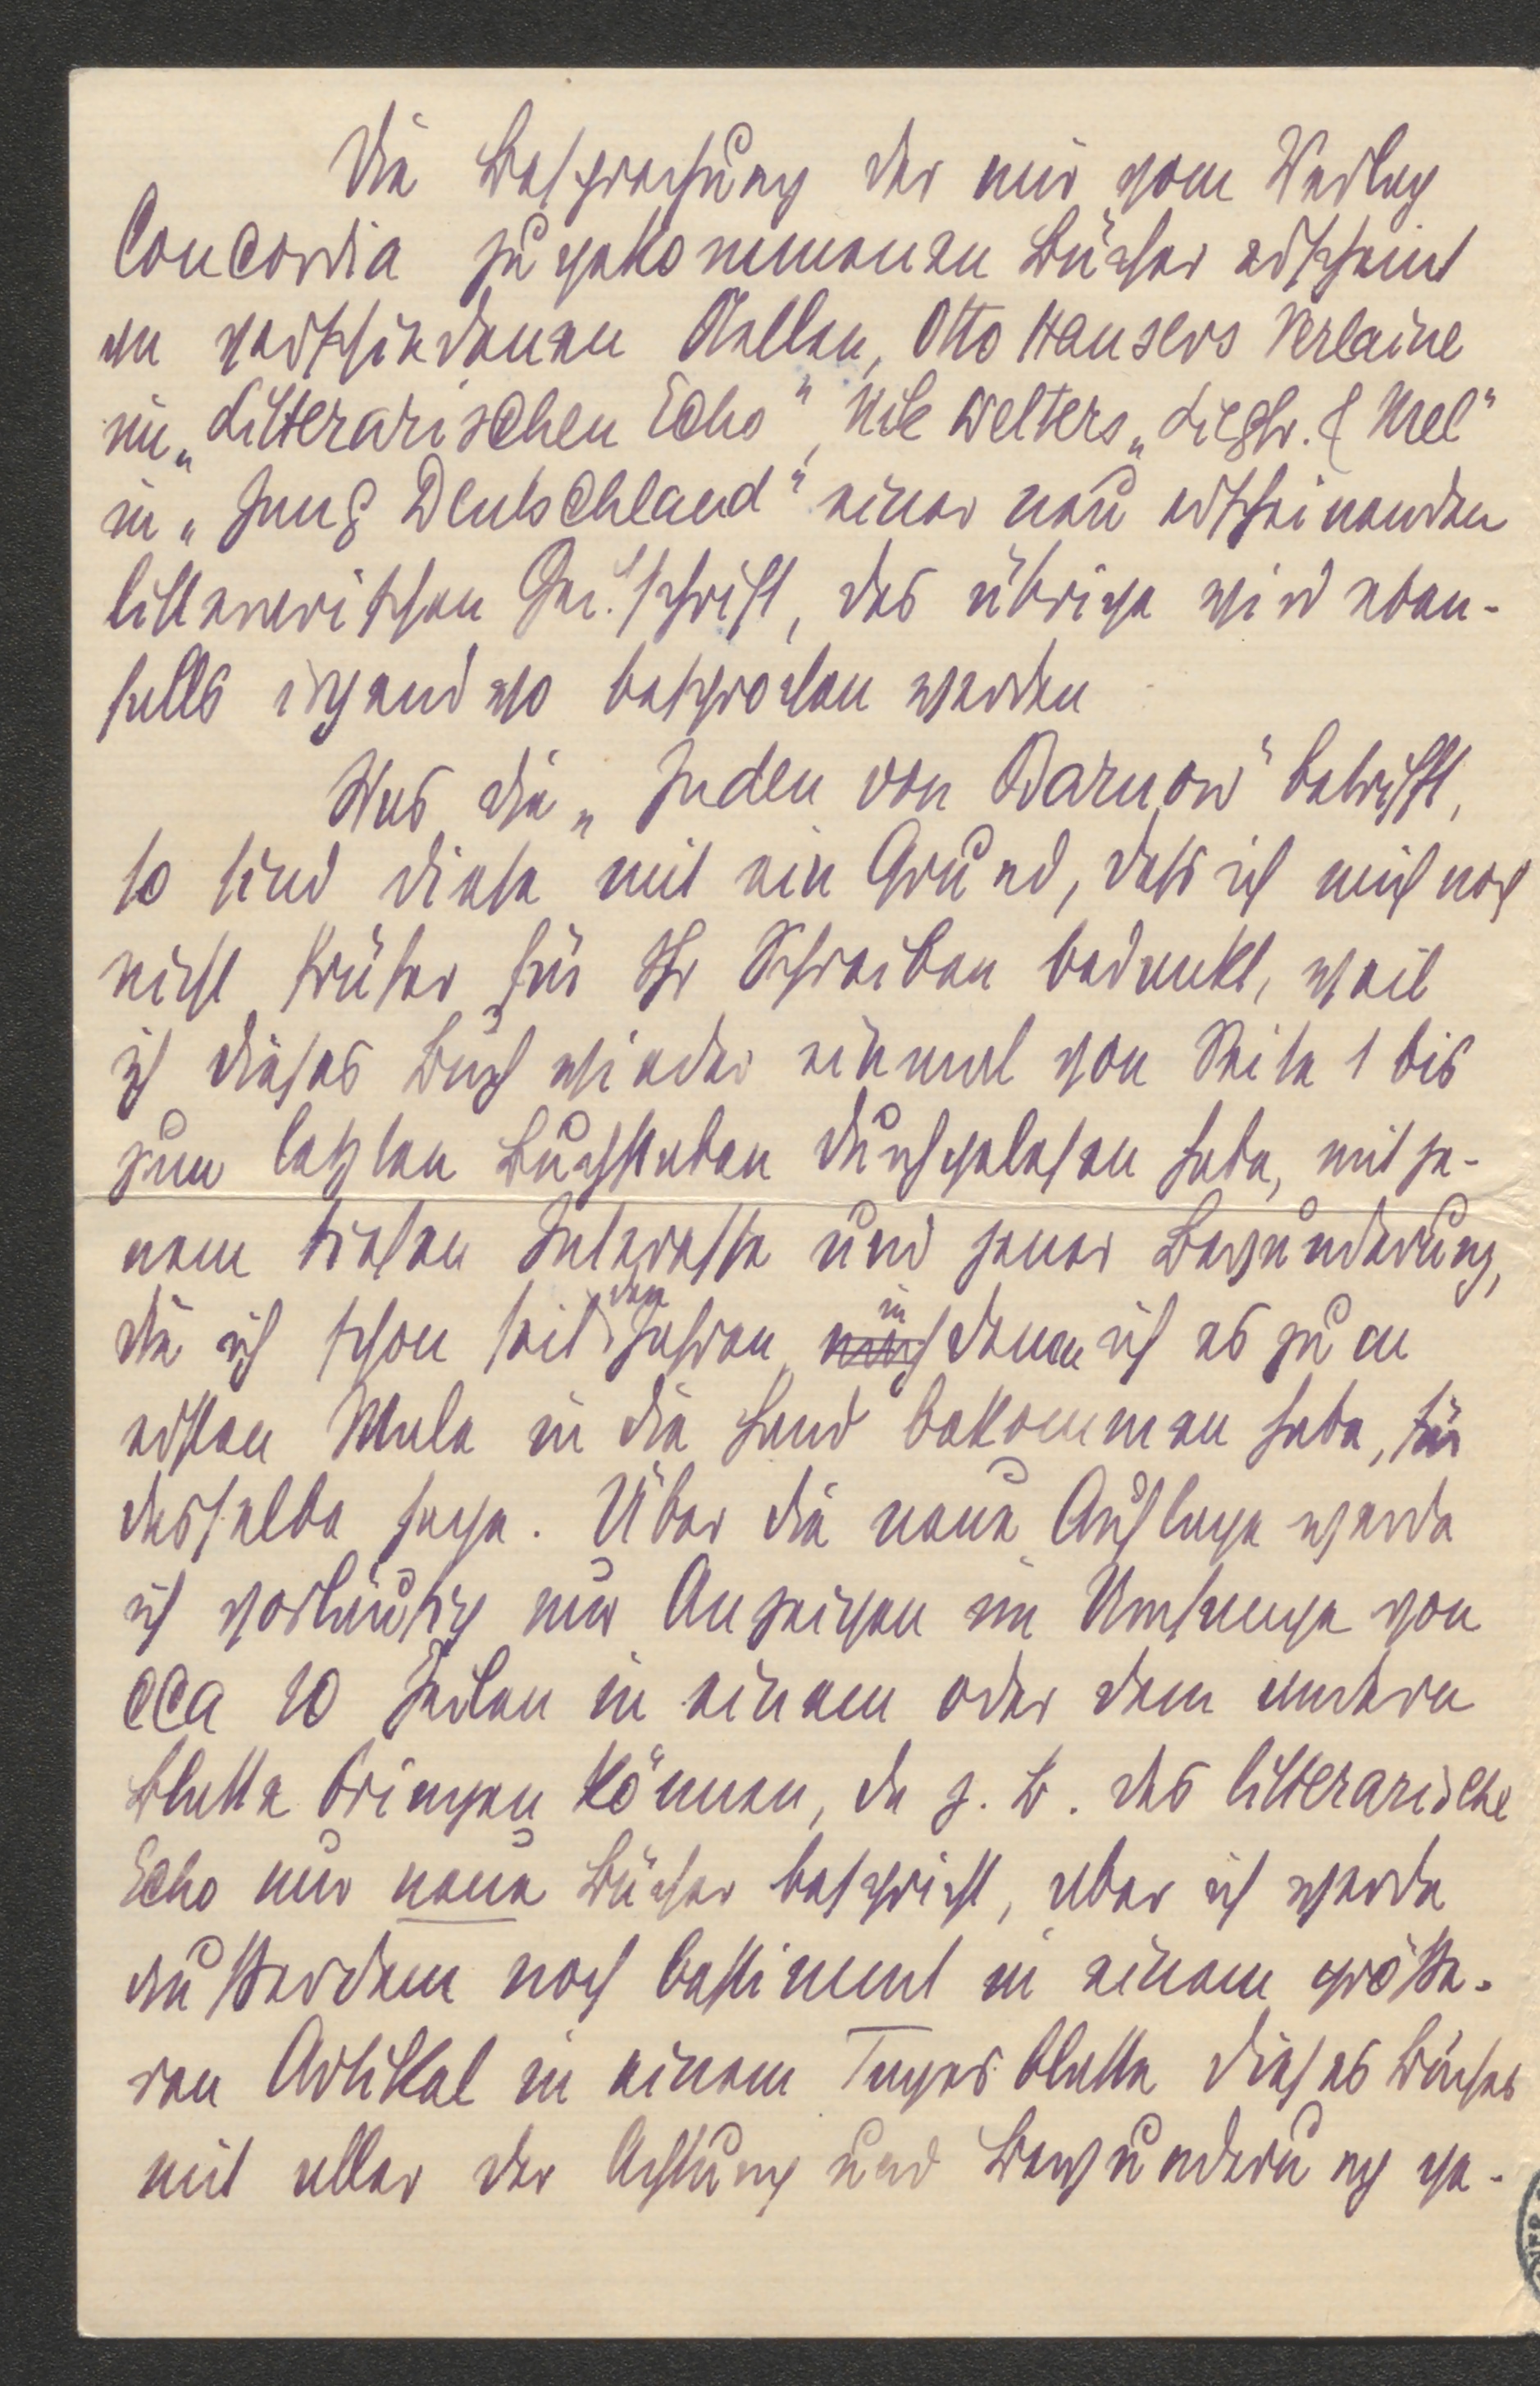 Die Besprechung der mir vom Verlag
Concordia zugekommenen Bücher erscheint
an verschiedenen Stellen, Otto Hausers Verlaine
im „Litterarischen Echo", Nik Welters „Siegfr. & Mel"
in „Jung Deutschland" einer neu erscheinenden
litterarischen Zeitschrift, das übrige wird eben-
falls irgendwo besprochen werden
Was die „Juden von Barnow" betrifft,
so sind diese mit ein Grund, dass ich mich noch
nicht früher für Ihr Schreiben bedankt, weil
ich dieses Buch wieder einmal von Seite 1 bis
zum letzten Buchstaben durchgelesen habe, mit je-
nem tiefen Interesse und jener Bewunderung,
die ich schon seit den Jahren, in denen ich es zum
ersten Male in die Hand bekommen habe, für
dasselbe hege. Über die neue Auflage werde
ich vorläufig nur Anzeigen im Umfange von
cca 10 Zeilen in einem oder dem andern
Blatte bringen können, da z. B. das litterarische
Echo nur neue Bücher bespricht, aber ich werde
außerdem noch bestimmt in einem größe-
ren Artikel in einem Tagesblatte dieses Buches
mit aller der Achtung und Bewunderung ge-